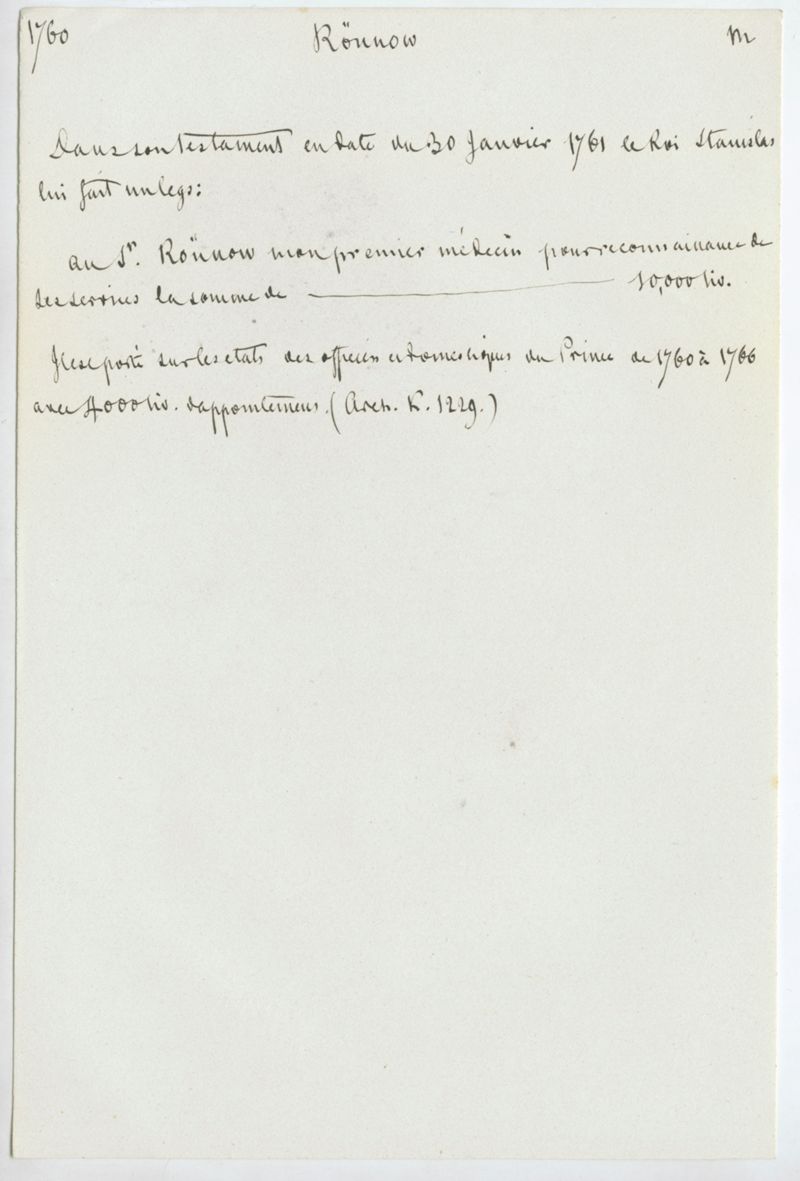 1760 Rönnow M
Dans son testament en date du 30 Janvier 1761 le Roi Stanislas
lui fait un legs:
au Sr. Rönnow mon premier médecin pour reconnaissance de
ses services la somme de ——— 10,000 liv.
Il est porté sur les etats des officiers et domestiques du Prince de 1760 à 1766
avec 4000 liv. d'appointemens. (Arch. K. 1229.)